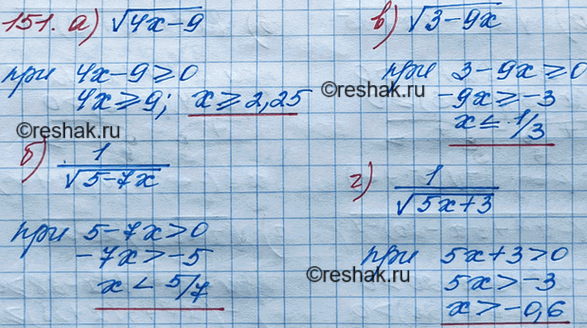 151. а) √4x-9
при 4x-9≥0
4x≥9; x≥2,25
©reshak.ru
б) 1/√5-7x
при 5-7x>0
-7x>-5
x<5/7
в) √3-9x
при 3-9x≥0
-9x≥-3
x≤1/3
©reshak.ru
г) 1/√5x+3
©reshak.ru
при 5x+3>0
5x>-3
x>-0,6